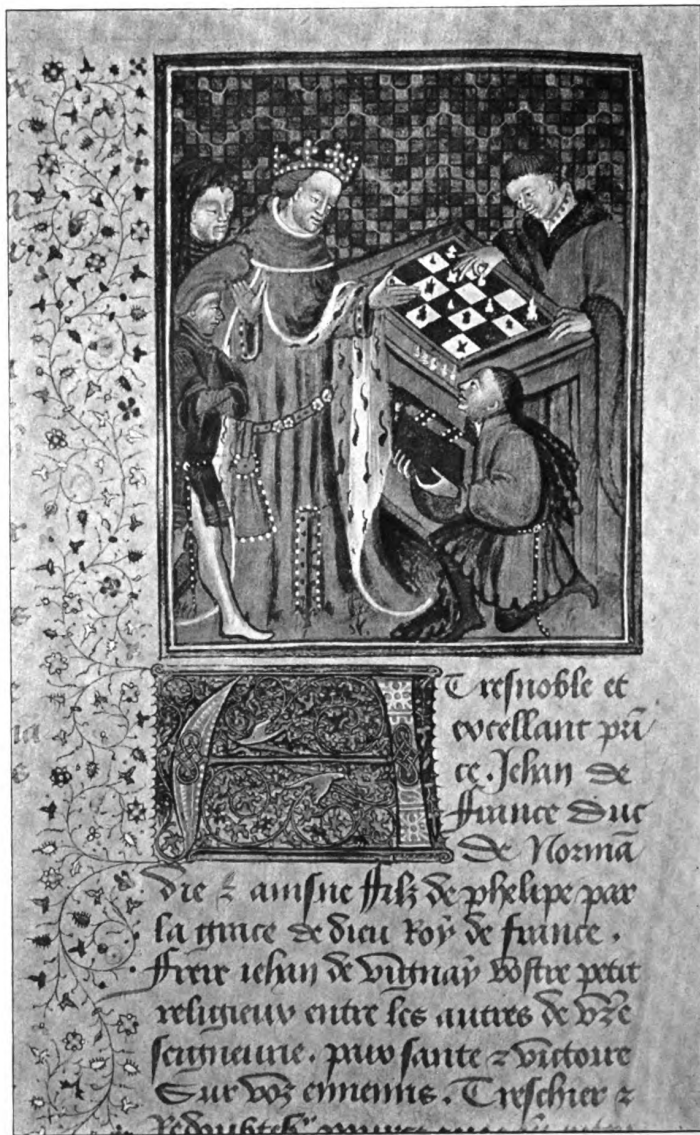 A Tresnoble et
excellant prī
ce. Jehan de
france duc
de Normā
die & aisne filz de phelipe par
la grace de dieu Roy de france.
Frere iehan de vignay vostre petit
religieux entre les autres de vr̄e
seigneurie. paix sante & victoire
Sur voz ennemis. Treschier &
Redoubte